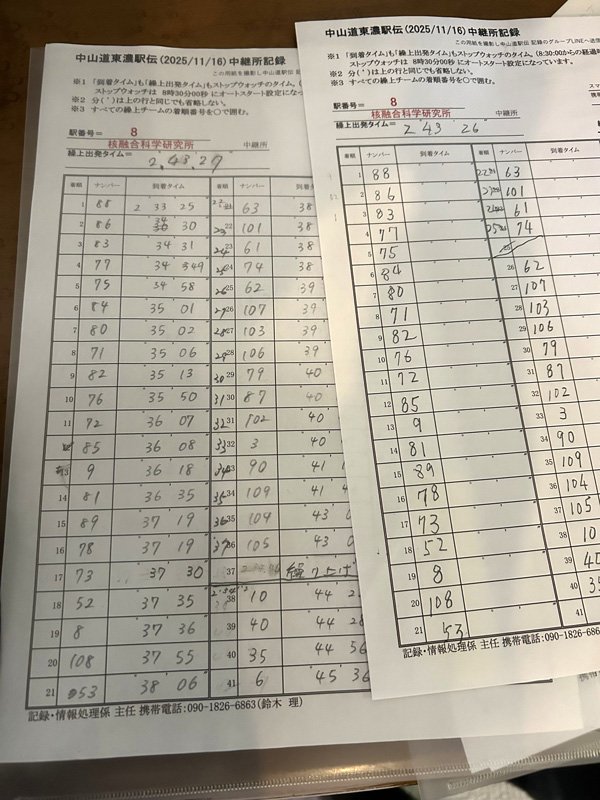 中山道東濃駅伝(2025/11/16)中継所記録
この用紙を撮影し中山道駅伝 記
※1 「到着タイム」も「繰上出発タイム」もストップウォッチのタイム。
ストップウォッチは 8時30分00秒 にオートスタート設定になっ
※2 分(')は上の行と同じでも省略しない。
※3 すべての繰上チームの着順番号を○で囲む。
駅番号= 8
核融合科学研究所 中継所
繰上出発タイム= 2,43,27
着順 ナンバー 到着タイム 着順 ナンバー 到着タ
1 88 2 33 25 63 38
2 86 30 101 38
3 83 34 31 61 38
4 77 34 74 38
5 75 34 58 62 39
6 84 35 01 107 39
7 80 35 02 103 39
8 71 35 06 106 39
9 82 35 13 79 40
10 76 35 50 87 40
11 72 36 07 102 40
85 36 08 3 40
13 9 36 18 90 41
14 81 36 35 109 41
15 89 37 19 104 43
16 78 37 19 105 43
17 73 37 30 37 繰り上げ
18 52 37 35 38 10 44
19 8 37 36 39 40 44
20 108 37 55 40 35 44 56
21 53 38 06 41 6 45 36
記録・情報処理係 主任 携帯電話:090-1826-6863(鈴木 理)
中山道東濃駅伝(2025/11/16)中継所記録
この用紙を撮影し中山道駅伝 記録のグループLINEへ送信
※1 「到着タイム」も「繰上出発タイム」もストップウォッチのタイム。(8:30:00からの経過時
ストップウォッチは 8時30分00秒 にオートスタート設定になっています。
※2 分(')は上の行と同じでも省略しない。
※3 すべての繰上チームの着順番号を○で囲む。
駅番号= 8
核融合科学研究所 中継所
繰上出発タイム= 2 43 26
着順 ナンバー 到着タイム 着順 ナンバー
1 88 63
2 86 101
3 83 61
4 77 74
5 75
6 84 26 62
7 80 27 107
8 71 28 103
9 82 29 106
10 76 30 79
11 72 31 87
12 85 32 102
13 9 33 3
14 81 34 90
15 89 35 109
16 78 36 104
17 73 37 105
18 52 38 10
19 8 39
20 108 40
21 53 41
記録・情報処理係 主任 携帯電話:090-1826-68